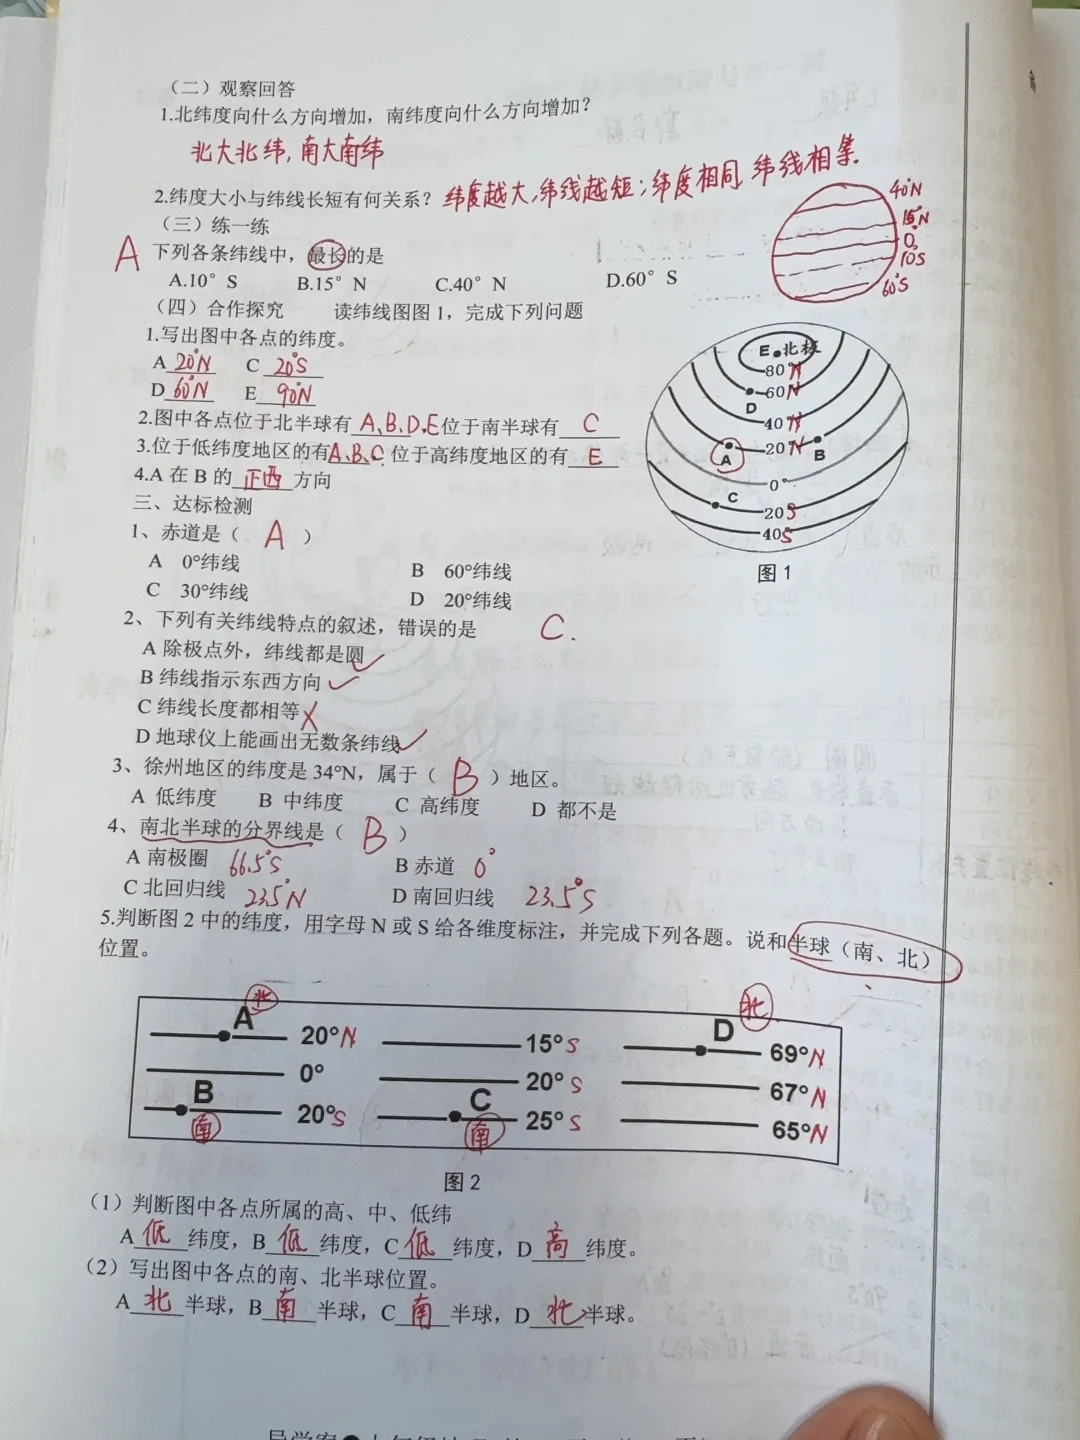 （二）观察回答
1.北纬度向什么方向增加，南纬度向什么方向增加？
北大北纬，南大南纬
2.纬度大小与纬线长短有何关系？纬度越大，纬线越短；纬度相同，纬线相等.
（三）练一练
A 下列各条纬线中，最长的是
A.10°S B.15°N C.40°N D.60°S
40°N
15°N
0°
10°S
60°S
（四）合作探究 读纬线图图1，完成下列问题
1.写出图中各点的纬度。
A 20°N C 20°S
D 60°N E 90°N
2.图中各点位于北半球有 A、B、D、E 位于南半球有 C
3.位于低纬度地区的有 A、B、C，位于高纬度地区的有 E
4.A在B的 正西 方向
E 北极
80 N
60 N
D
40 N
20 N
A
B
0°
C
20 S
40 S
图1
三、达标检测
1、赤道是（ A ）
A 0°纬线 B 60°纬线
C 30°纬线 D 20°纬线
2、下列有关纬线特点的叙述，错误的是 C.
A 除极点外，纬线都是圆 ✓
B 纬线指示东西方向 ✓
C 纬线长度都相等 ✗
D 地球仪上能画出无数条纬线 ✓
3、徐州地区的纬度是34°N，属于（ B ）地区。
A 低纬度 B 中纬度 C 高纬度 D 都不是
4、南北半球的分界线是（ B ）
A 南极圈 66.5°S B 赤道 0°
C 北回归线 23.5°N D 南回归线 23.5°S
5.判断图2中的纬度，用字母N或S给各维度标注，并完成下列各题。说和半球（南、北）
位置。
北
A 20°N
0°
B 20°S
南
15°S
20°S
C 25°S
南
北
D 69°N
67°N
65°N
图2
（1）判断图中各点所属的高、中、低纬
A 低 纬度，B 低 纬度，C 低 纬度，D 高 纬度。
（2）写出图中各点的南、北半球位置。
A 北 半球，B 南 半球，C 南 半球，D 北 半球。